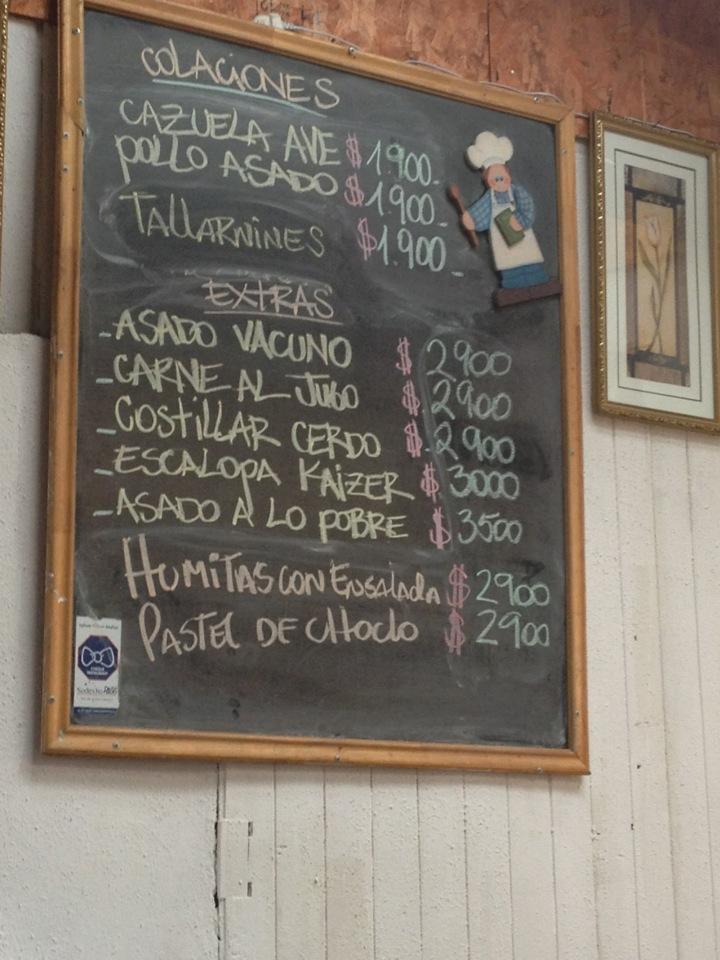 COLACIONES
CAZUELA AVE $1.900.-
POLLO ASADO $1.900.-
TALLARNINES $1.900.-
EXTRAS
-ASADO VACUNO $2900
-CARNE AL JUGO $2900
-COSTILLAR CERDO $2900
-ESCALOPA KAIZER $3000
-ASADO A LO POBRE $3500
HUMITAS CON ENSALADA $2900
PASTEL DE CHOCLO $2900
Sodexho PASS